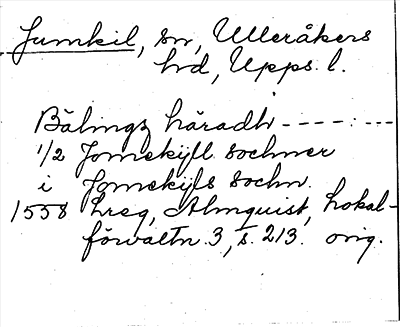 Jumkil, sn, Ulleråkers
hd, Upps. l.
Bälings häradh - - - - : - - -
1/2 Jomekijll sochner
i Jomekijls sochn.
1558 Lreg, Almquist, Lokal-
förvaltn. 3, s. 213. orig.